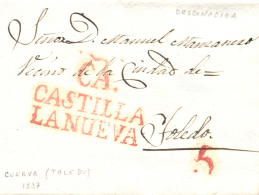 DESCONOCIDA
Señor D. Manuel Manzanero
Vecino de la Ciudad de =
CA.
CASTILLA
LA NUEVA
Toledo.
5
CUERVA (TOLEDO)
1837